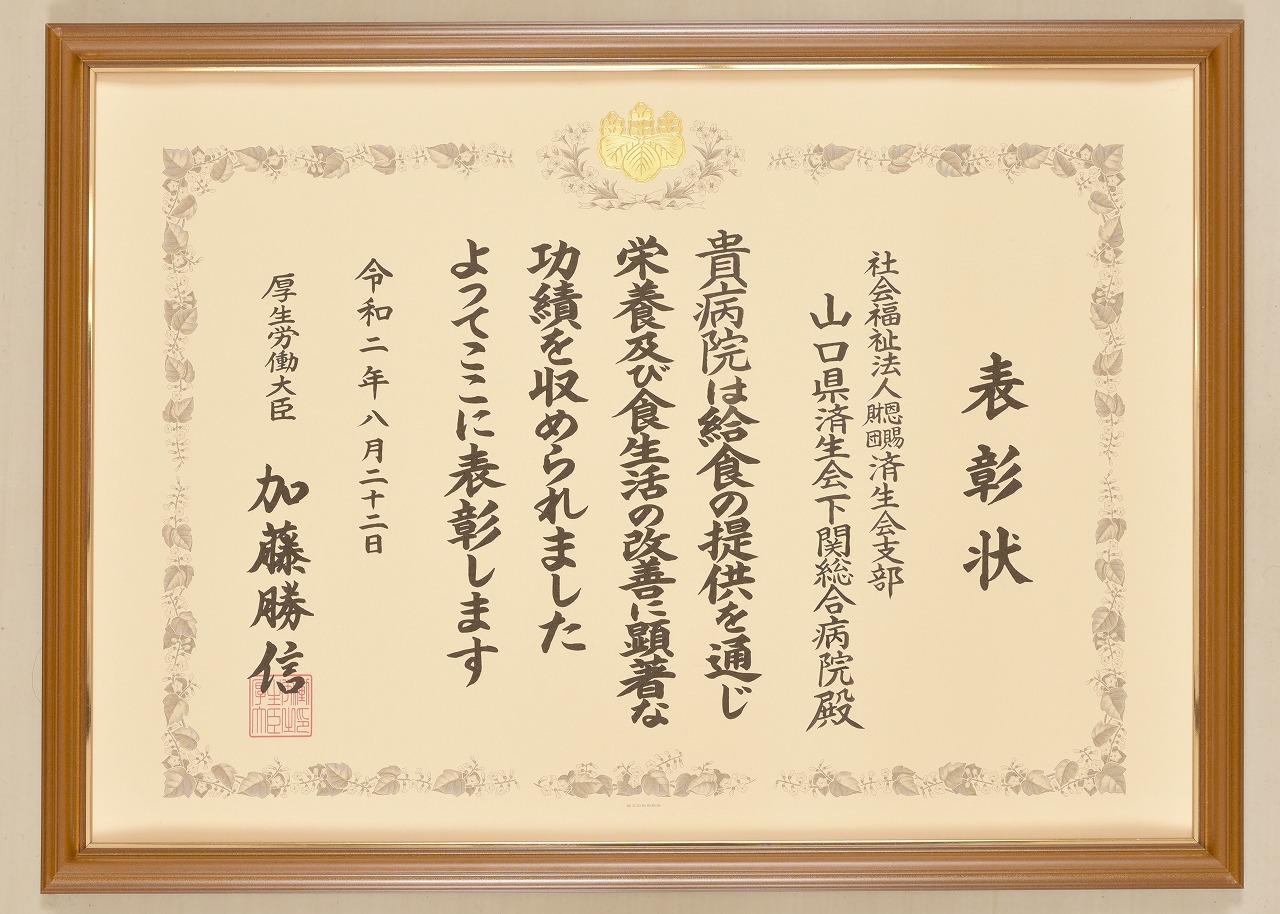 表彰状
社会福祉法人恩賜財団済生会支部
山口県済生会下関総合病院殿
貴病院は給食の提供を通じ
栄養及び食生活の改善に顕著な
功績を収められました
よってここに表彰します
令和二年八月二十二日
厚生労働大臣
加藤勝信